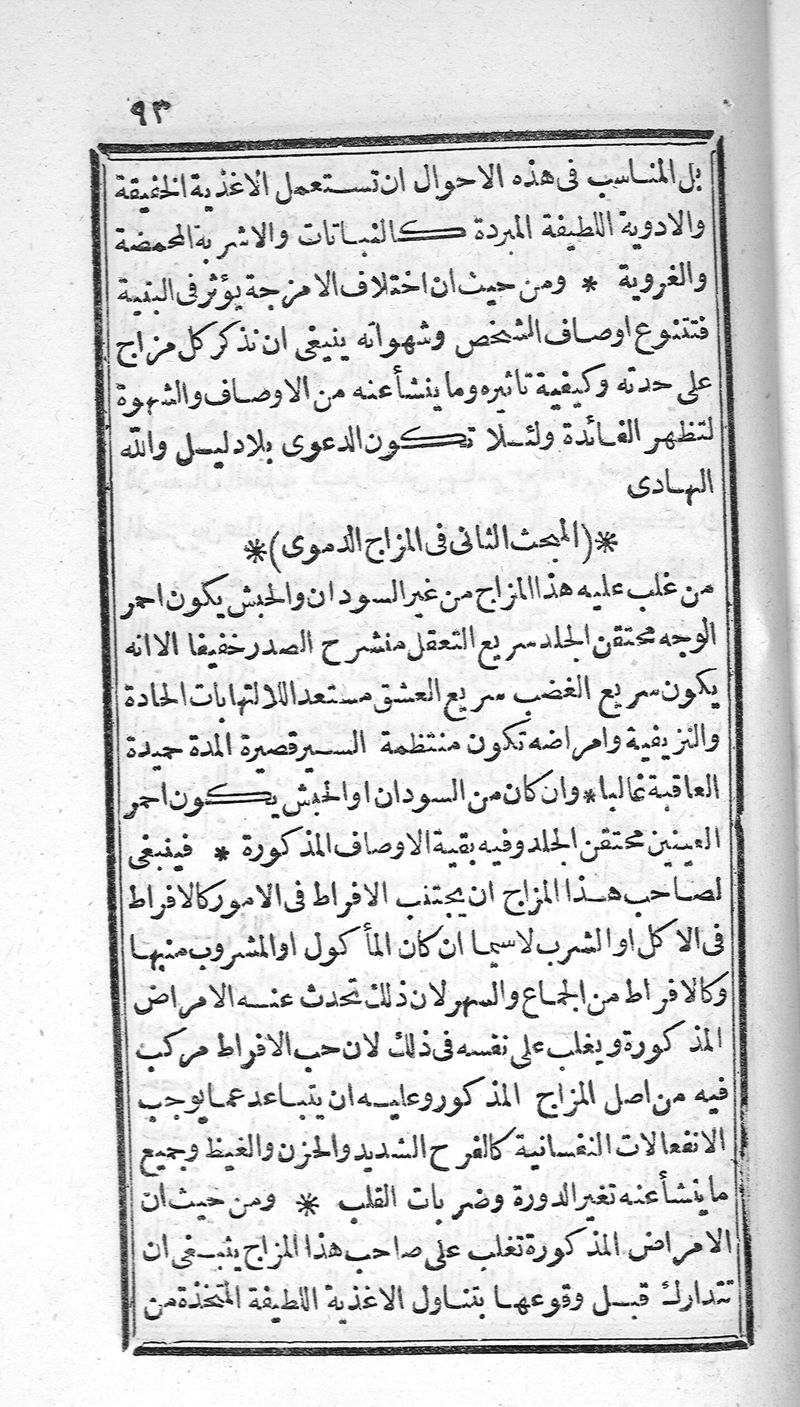 ٩٣
بل المناسب فى هذه الاحوال ان تستعمل الاغذية الخفيفة
والادوية اللطيفة المبردة كالنباتات والاشربة المحمضة
والغروية * ومن حيث ان اختلاف الامزجة يؤثر فى البنية
فتتنوع اوصاف الشخص وشهواته ينبغى ان نذكر كل مزاج
على حدته وكيفية تاثيره وما ينشأ عنه من الاوصاف والشهوة
لتظهر الفائدة ولئلا تكون الدعوى بلا دليل والله
الهادى
*(المبحث الثانى فى المزاج الدموى)*
من غلب عليه هذا المزاج من غير السودان والحبش يكون احمر
الوجه محتقن الجلد سريع التعقل منشرح الصدر خفيفا الا انه
يكون سريع الغضب سريع العشق مستعد اللالتهابات الحادة
والنزيفية وامراضه تكون منتظمة السير قصيرة المدة حميدة
العاقبة غالبا * وان كان من السودان او الحبش يكون احمر
العينين محتقن الجلد وفيه بقية الاوصاف المذكورة * فينبغى
لصاحب هذا المزاج ان يجتنب الافراط فى الامور كالافراط
فى الاكل او الشرب لاسيما ان كان المأكول او المشروب منبها
وكالافراط من الجماع والسهر لان ذلك تحدث عنه الامراض
المذكورة ويغلب على نفسه فى ذلك لان حب الافراط مركب
فيه من اصل المزاج المذكور وعليه ان يتباعد عما يوجب
الانفعالات النفسانية كالفرح الشديد والحزن والغيظ وجميع
ما ينشأ عنه تغير الدورة وضربات القلب * ومن حيث ان
الامراض المذكورة تغلب على صاحب هذا المزاج ينبغى ان
تتدارك قبل وقوعها بتناول الاغذية اللطيفة المتخذة من